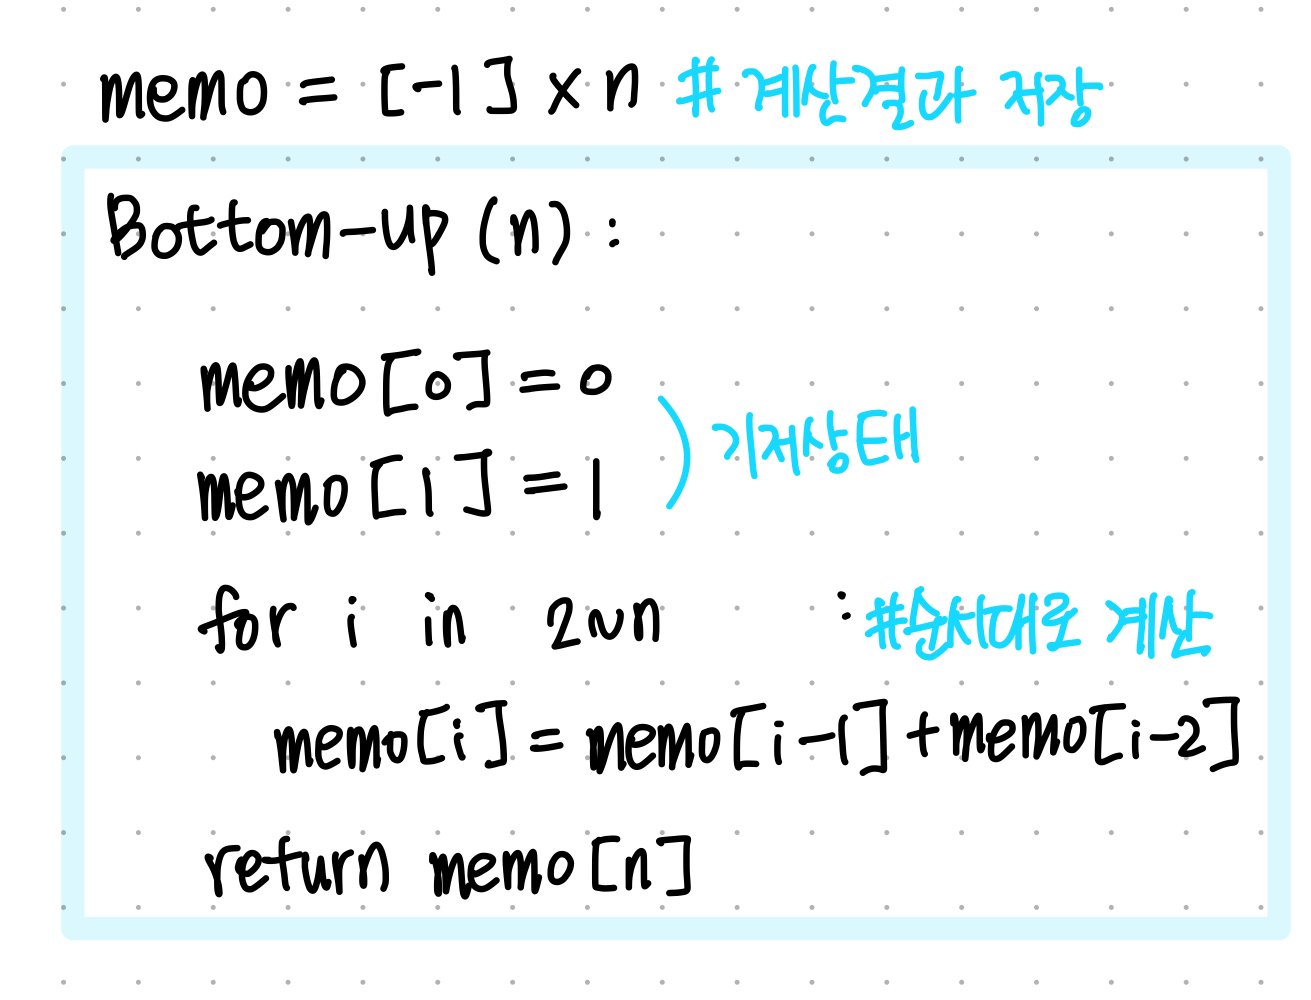 memo = [-1] × n # 계산결과 저장
Bottom-up (n) :
memo[0] = 0
memo[1] = 1
) 기저상태
for i in 2~n : #순서대로 계산
memo[i] = memo[i-1] + memo[i-2]
return memo[n]